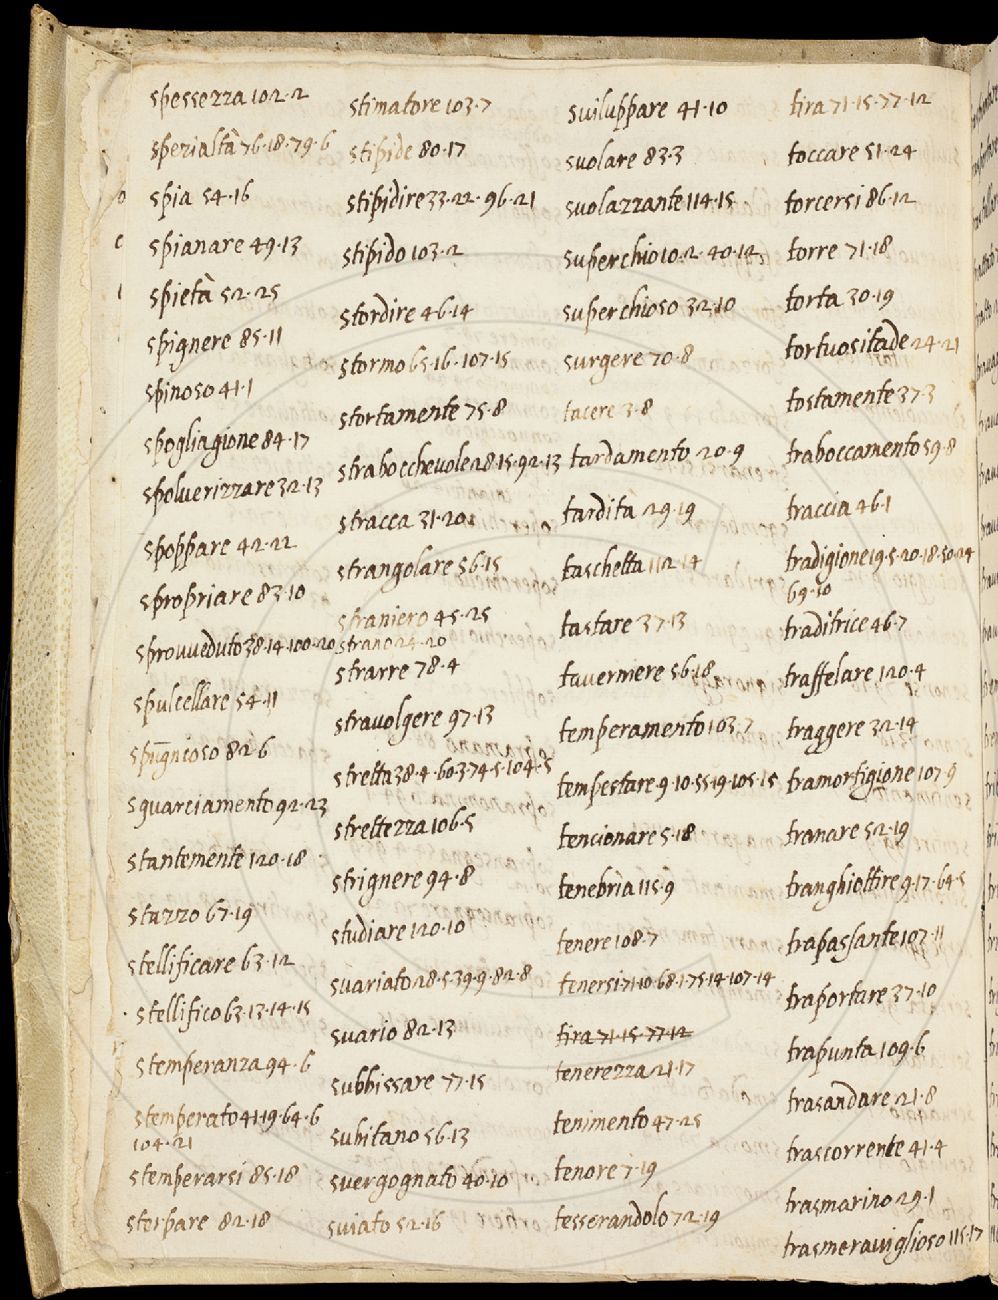 spessezza 102·2
spezialtà 76·18·79·6
spia 54·16
spianare 49·13
spietà 52·25
spignere 85·11
spinoso 41·1
spogliagione 84·17
spoluerizzare 32·13
spoppare 42·22
spropriare 83·10
sprouueduto 38·14·100·20
spulcellare 54·11
spugnioso 82·6
squarciamento 92·23
stantemente 120·18
stazzo 67·19
stellificare 63·12
stellifico 63·13·14·15
stemperanza 94·6
stemperato 41·19·64·6
104·21
stemperarsi 85·18
sterpare 82·18
stimatore 103·7
stipide 80·17
stipidire 33·22·96·21
stipido 103·2
stordire 46·14
stormo 65·16·107·15
stortamente 75·8
strabocchevole 28·15·92·13
stracca 31·20
strangolare 56·15
straniero 45·25
strano 24·20
strarre 78·4
stravolgere 97·13
stretta 38·4·60·3·74·5·104·5
strettezza 106·5
strignere 94·8
studiare 120·10
suariato 28·5·39·9·82·8
suario 82·13
subbissare 77·15
subitano 56·13
suergognato 40·10
suiato 52·16
suiluppare 41·10
suolare 83·3
suolazzante 114·15
superchio 10·2·40·12
superchioso 32·10
surgere 70·8
tacere 3·8
tardamento 20·9
tardità 29·19
taschetta 112·14
tastare 37·13
tauerniere 56·18
temperamento 103·7
tempestare 9·10·55·19·105·15
tencionare 5·18
tenebria 115·9
tenere 108·7
tenersi 71·10·68·1·75·14·107·14
tira 71·15·77·12
tenerezza 21·17
tenimento 47·25
tenore 7·19
tesserandolo 72·19
tira 71·15·77·12
toccare 51·24
torcersi 86·12
torre 71·18
torta 30·19
tortuositade 24·21
tostamente 37·3
traboccamento 59·8
traccia 46·1
tradigione 19·5·20·18·50·24
69·10
traditrice 46·7
traffelare 120·4
traggere 32·14
tramortigione 107·9
tranare 52·19
tranghiottire 9·17·64·5
trapassante 107·11
traportare 37·10
trapunta 109·6
trasandare 21·8
trascorrente 41·4
trasmarino 29·1
trasmerauiglioso 115·17